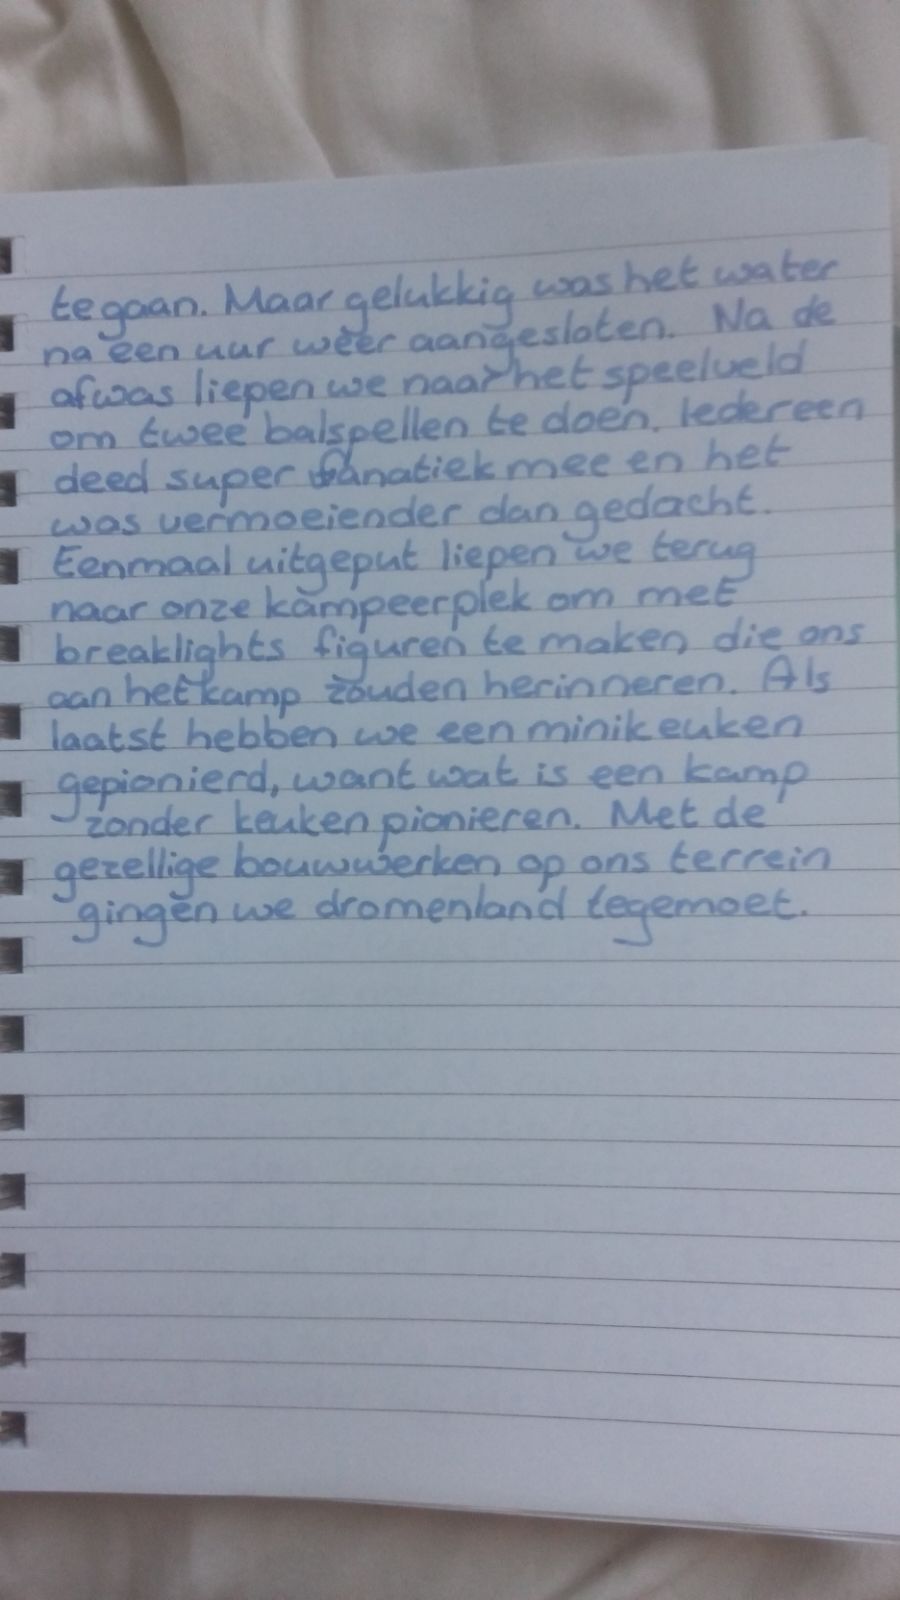 te gaan. Maar gelukkig was het water
na een uur weer aangesloten. Na de
afwas liepen we naar het speelveld
om twee balspellen te doen. Iedereen
deed super fanatiek mee en het
was vermoeiender dan gedacht.
Eenmaal uitgeput liepen we terug
naar onze kampeerplek om met
breaklights figuren te maken die ons
aan het kamp zouden herinneren. Als
laatst hebben we een minikeuken
gepionierd, want wat is een kamp
zonder keuken pionieren. Met de
gezellige bouwwerken op ons terrein
gingen we dromenland tegemoet.